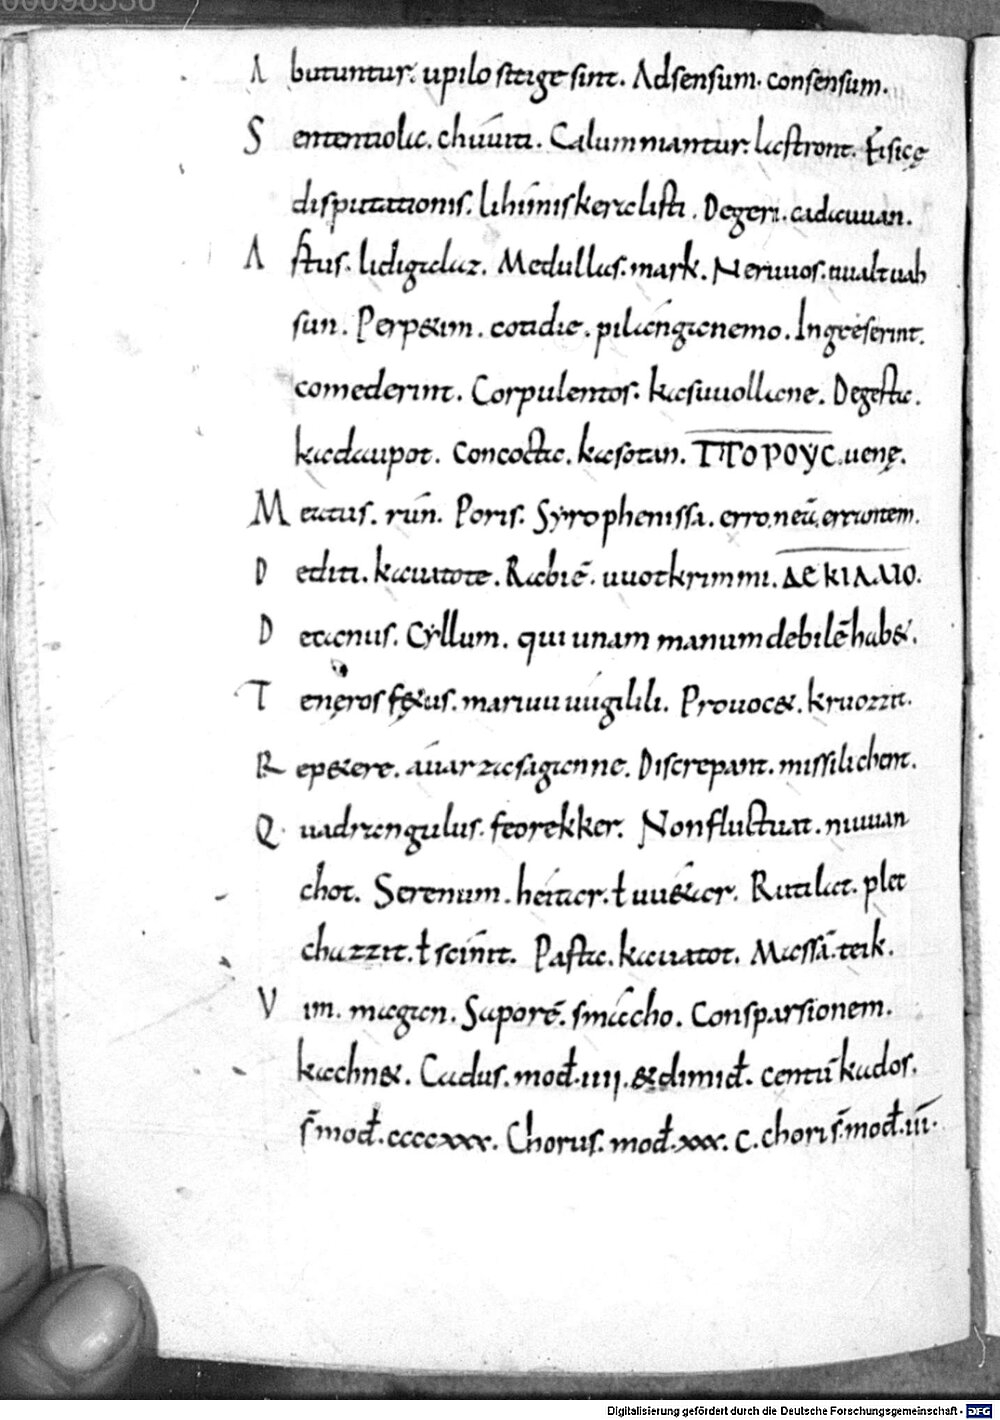 00096336
A butuntur. upilo stige sint. Adsensum. consensum.
S ententiolae. chúuiti. Calumniantur. lastront. Fisicę
disputationis. lihímiskera listi. Degeri. cadauuan.
A stus. lidigilaz. Medullas. mark. Neruuos. uualtuuah
sun. Perpetim. cotidie. pilángánemo. Ingesserint.
comederint. Corpulentos. kasuuollane. Degesta.
kadaupot. Concocta. kasotan. ΠΟΡΟΥC. uenę.
M eatus. rún. Poris. Syrophenissa. erroneū. errantem.
D editi. kauuatote. Rabiē. uuotkrimmi. ΔΕΚΙΛΛΙΟ.
D ecanus. Cyllum. qui unam manum debilē habet.
T enęros fętus. maruuu uúgilili. Prouocet. kruozzit.
R epetere. áuar zasagienne. Discrepant. missilichent.
Q uadrangulus. feorekker. Nonfluctuat. niuuan
chot. Serenum. heitar. ł uuétar. Rutilat. plec
chazzit. ł scínit. Pasta. kauuatot. Massā. teik.
V im. magan. Saporē. smáccho. Consparsionem.
kachnet. Cadus. mod̄. iiii. & dimid̄. centū kados.
s̄ mod̄. ccccxxx. Chorus. mod̄. xxx. C. chori s̄ mod̄. iii.
Digitalisierung gefördert durch die Deutsche Forschungsgemeinschaft - DFG